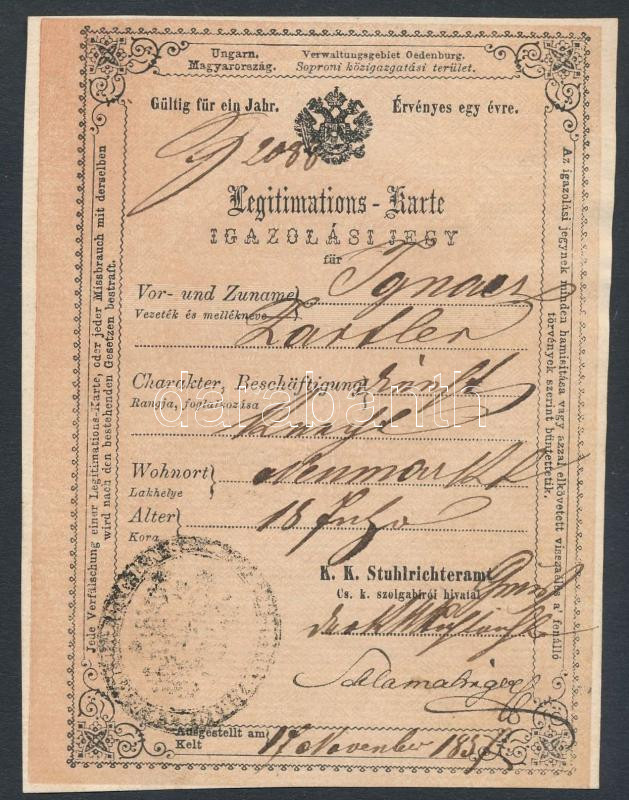 Ungarn.
Magyarország.
Verwaltungsgebiet Oedenburg.
Soproni közigazgatási terület.
Gültig für ein Jahr.
Érvényes egy évre.
2088
Legitimations-Karte
IGAZOLÁSI JEGY
für
Vor- und Zuname
Vezeték és mellékneve
Ignacz
Zartler
Charakter, Beschäftigung
Rangja, foglalkozása
Wohnort
Lakhelye
Neumarkt
Alter
Kora
18
K. K. Stuhlrichteramt
Cs. k. szolgabirói hivatal
Ausgestellt am
Kelt
17 November 1857
Jede Verfälschung einer Legitimations-Karte, oder jeder Missbrauch mit derselben
wird nach den bestehenden Gesetzen bestraft.
Az igazolási jegynek minden hamisitása vagy azzal elkövetett visszaélés a' fenálló
törvények szerint büntettetik.
darabanth